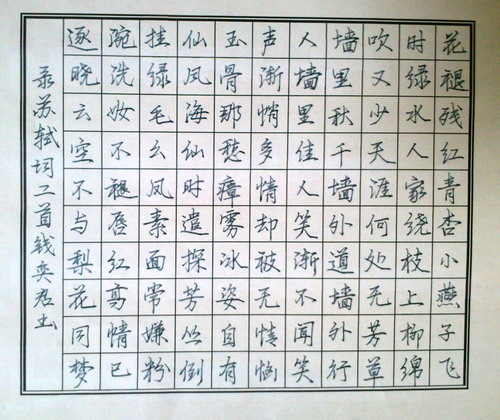 花褪残红青杏小燕子飞
时绿水人家绕枝上柳绵
吹又少天涯何处无芳草
墙里秋千墙外道墙外行
人墙里佳人笑渐不闻笑
声渐悄多情却被无情恼
玉骨那愁瘴雾冰姿自有
仙风海仙时遣探芳丛倒
挂绿毛么凤素面常嫌粉
涴洗妆不褪唇红高情已
逐晓云空不与梨花同梦
录苏轼词二首钱奕君书